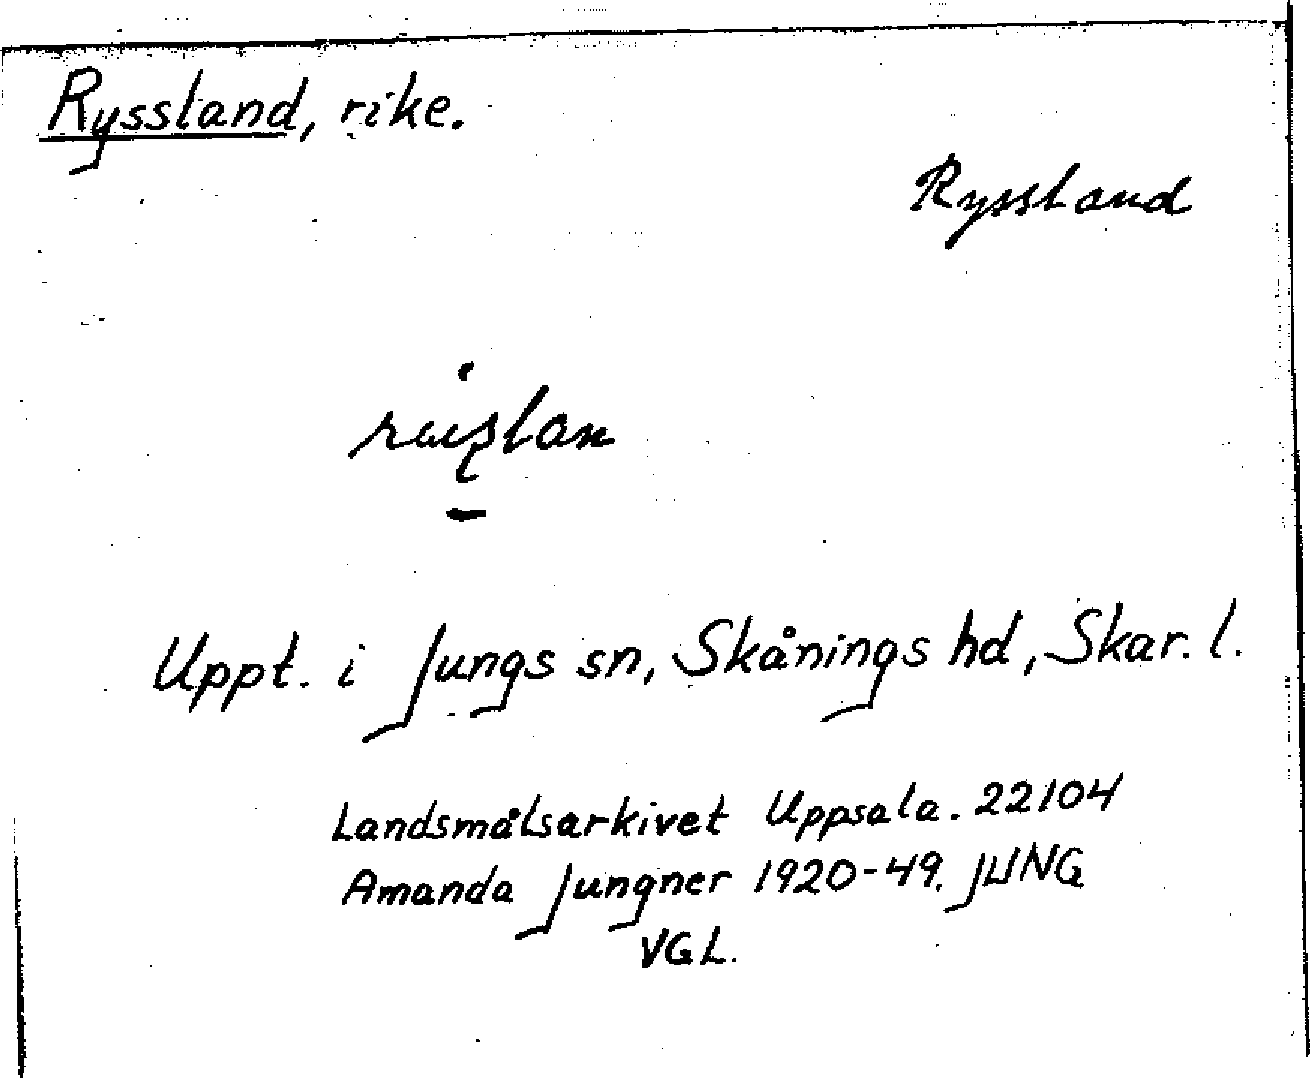 Ryssland, rike.
Ryssland
Uppt. i Jungs sn, Skånings hd, Skar. l.
Landsmålsarkivet Uppsala. 22104
Amanda Jungner 1920-49. JUNG
VGL.